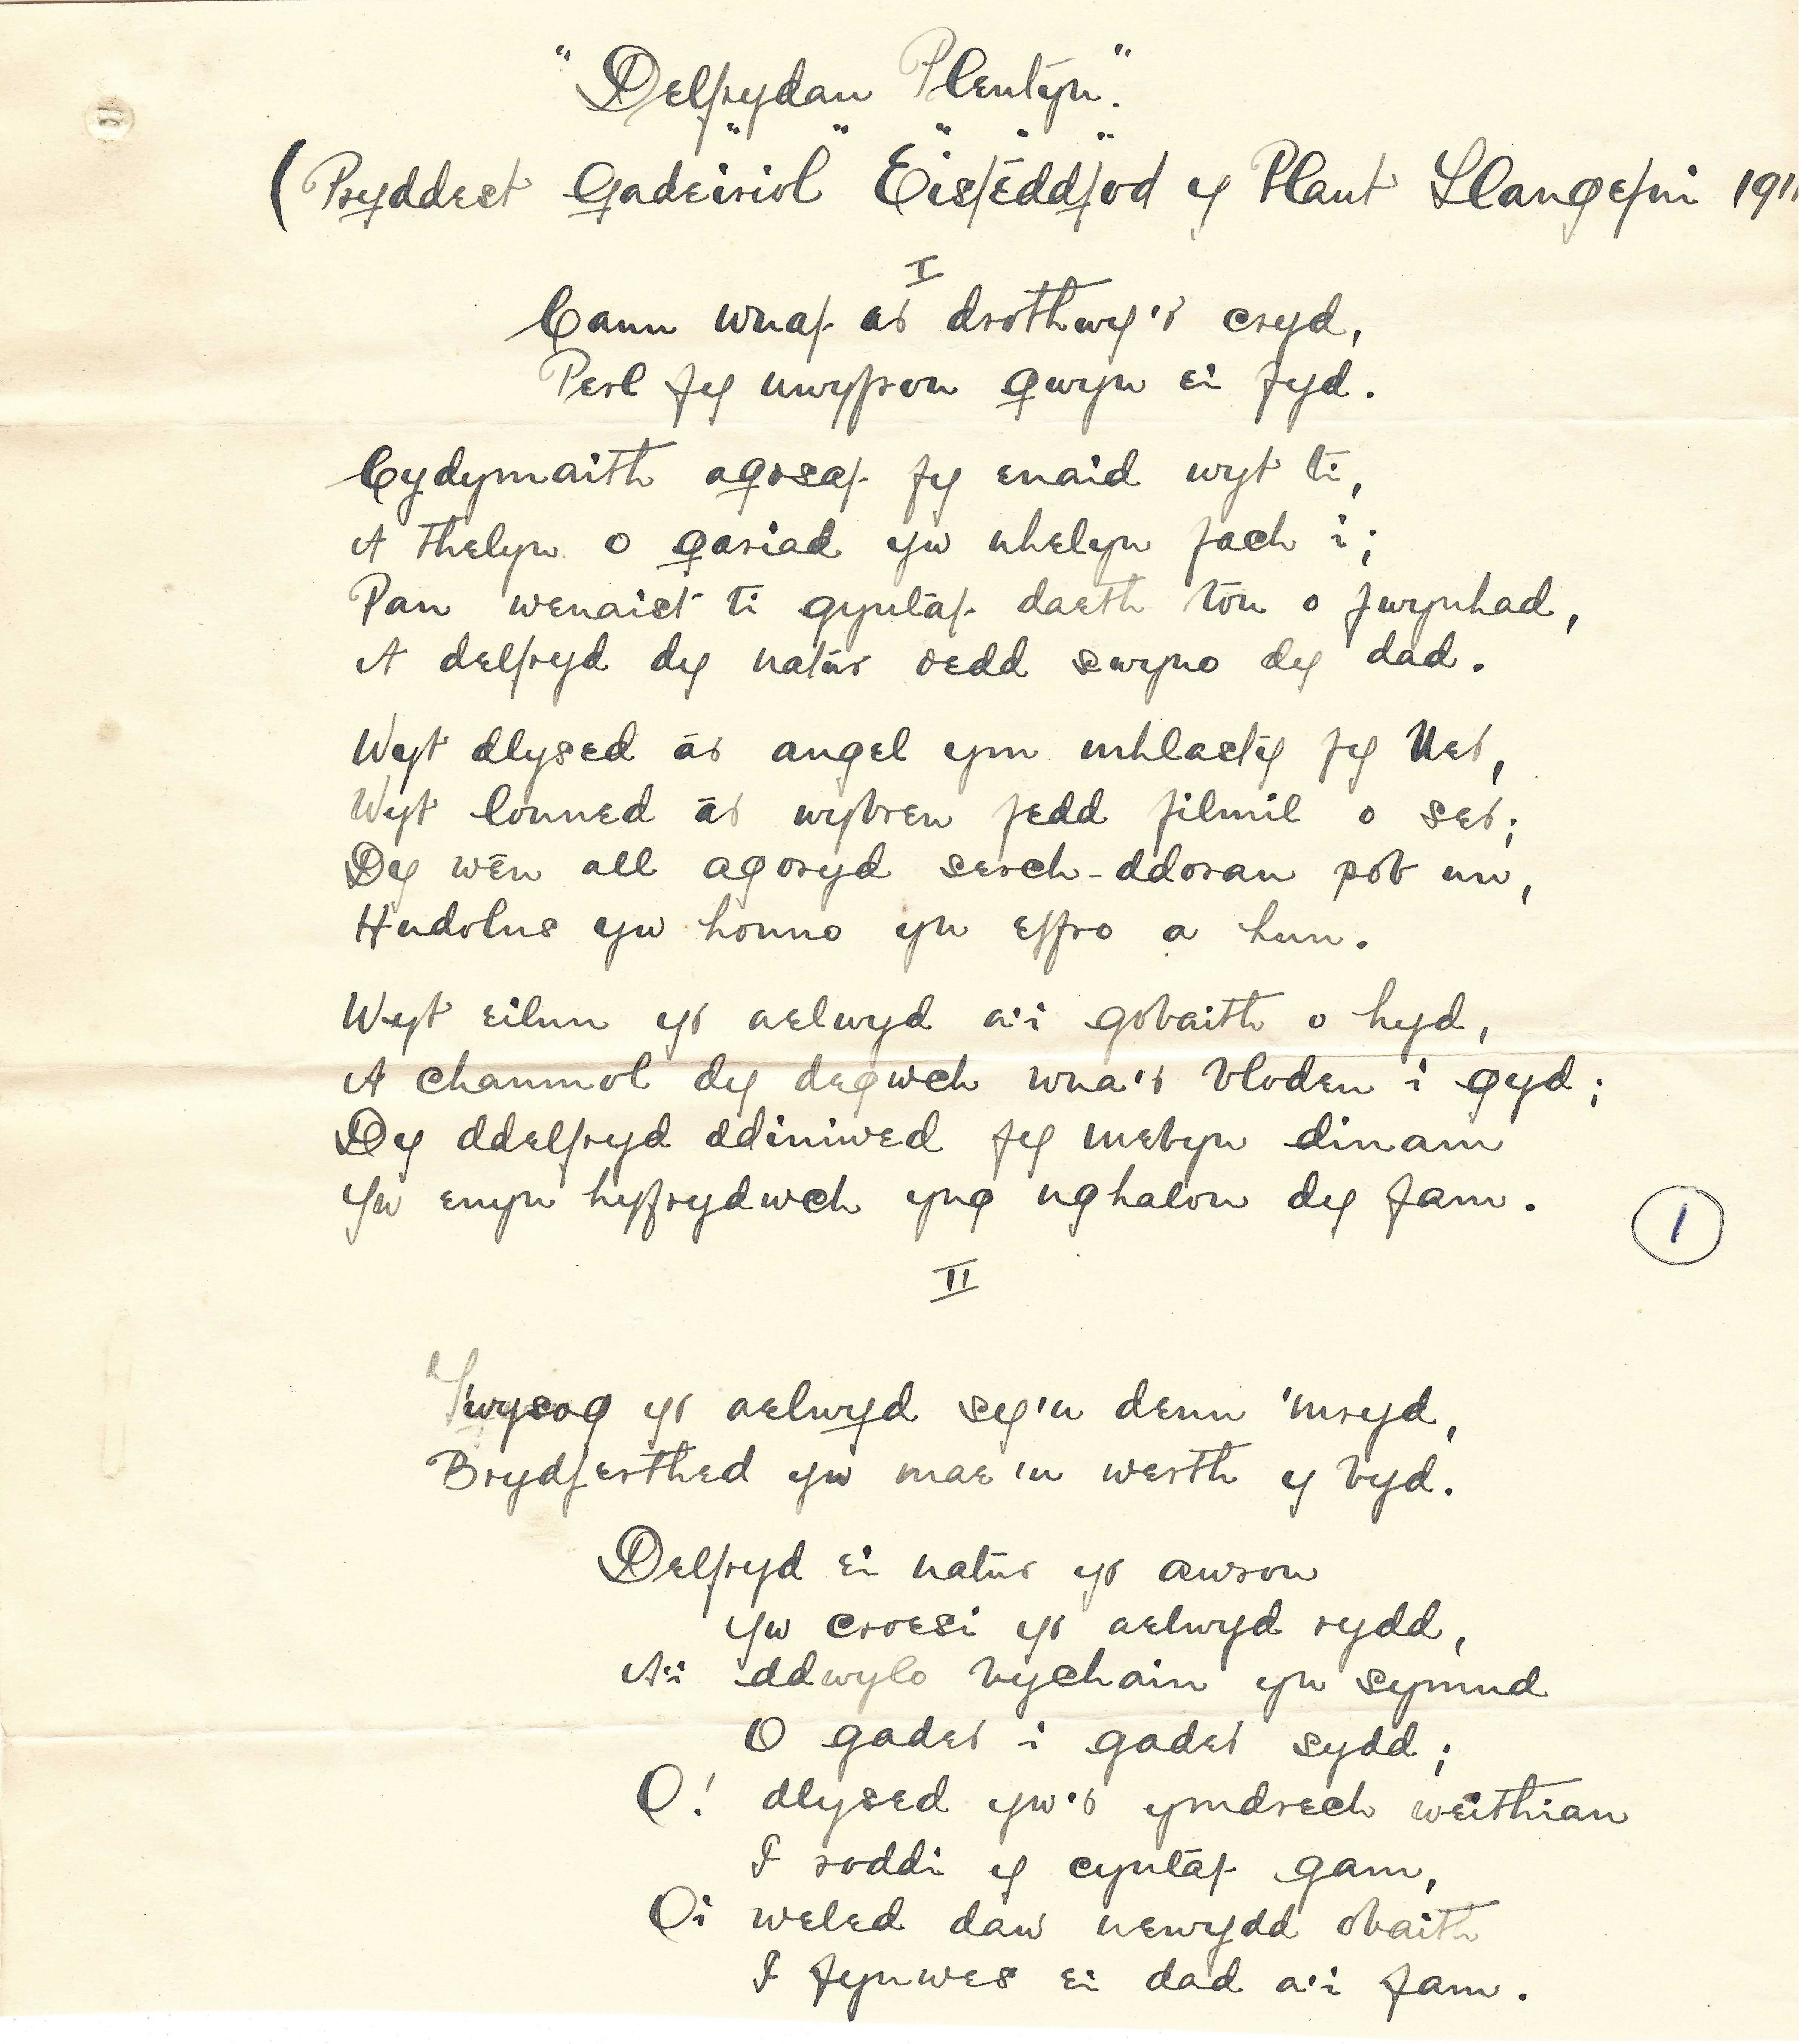 "Delfrydau Plentyn."
(Pryddest Gadeiriol Eisteddfod y Plant Llangefni 191
I
Cann wnaf ar drothwy'r cryd,
Perl fy nwyfron gwyn ei fyd.
Cydymaith agosaf fy enaid wyt ti,
A thelyn o gariad yw nhelyn fach i;
Pan wenaist ti gyntaf daeth tôn o fwynhad,
A delfryd dy natur oedd swyno dy dad.
Wyt dlysed ar angel ym mhlasty fy Ner,
Wyt lonned ar wybren fedd filmil o ser;
Dy wên all agoryd serch-ddoran pob un,
Hudolus yw honno yn effro a hun.
Wyt eilun yr aelwyd a'i gobaith o hyd,
A chanmol dy degwch wna'r blodeu i gyd;
Dy ddelfryd ddiniwed fy mebyn dinam
Yw enyn hyfrydwch yng nghalon dy fam.
1
II
Twysog yr aelwyd sy'n denu 'mryd,
Brydferthed yw mae'n werth y byd.
Delfryd ei natur yr awron
Yw croesi yr aelwyd rydd,
A'i ddwylo bychain yn symud
O gader i gader sydd;
O! dlysed yw'r ymdrech weithian
I roddi y cyntaf gam,
O'i weled daw newydd obaith
I fynwes ei dad a'i fam.